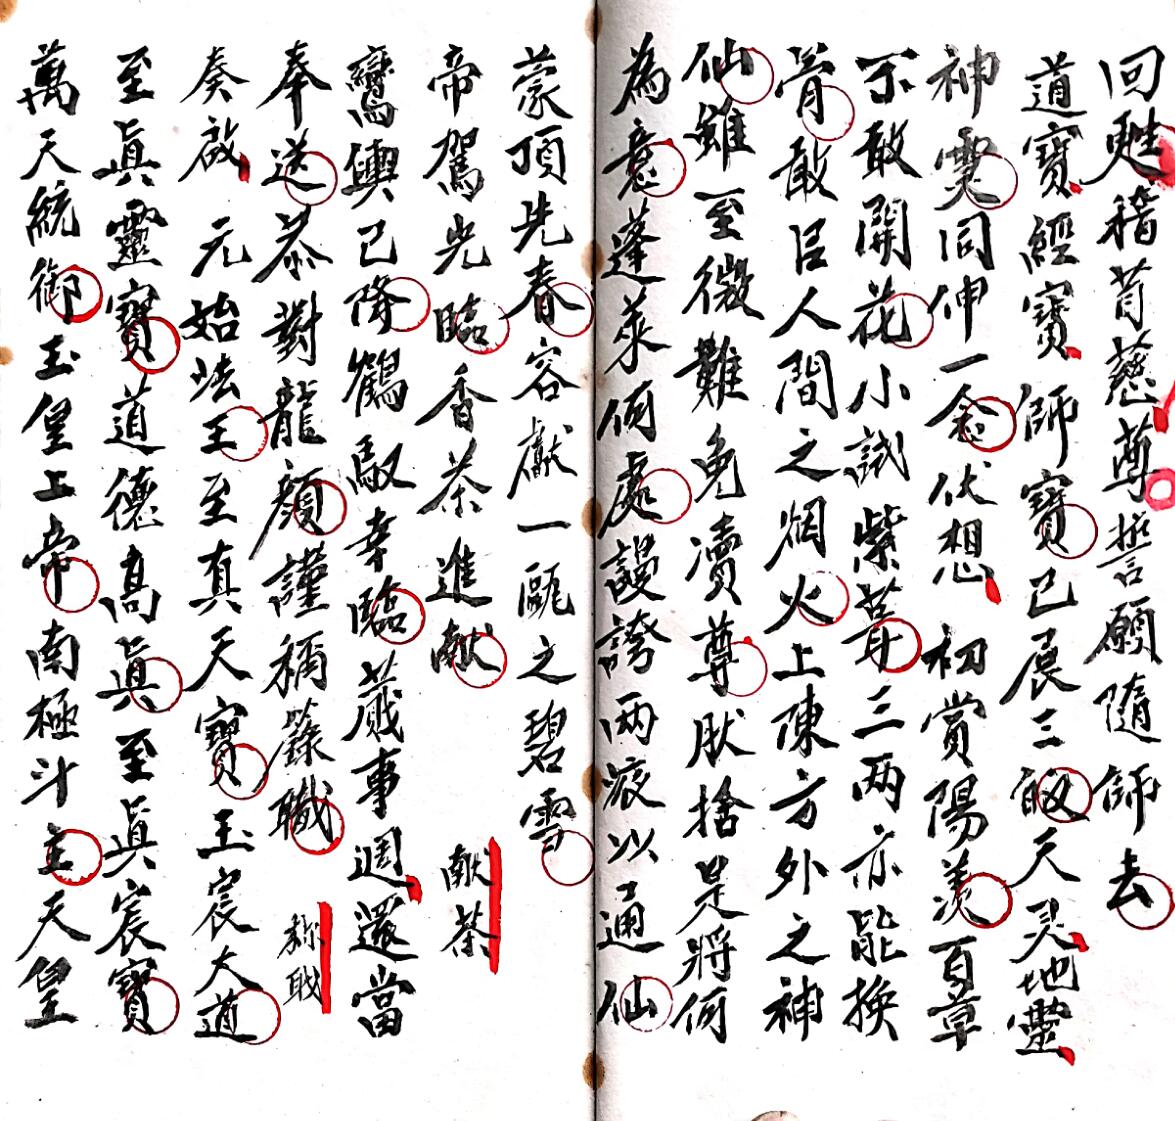 回甦稽首慈尊誓願隨師去
道寶經寶師寶已展三皈天灵地靈
神靈同伸一念伏想初賞陽羡百草
不敢開花小試紫茸三两亦能換
骨敢曰人間之烟火上陳方外之神
仙雖至微難免瀆尊肰捨是將何
為意蓬萊何處謾誇两液以通仙
蒙頂先春容獻一甌之碧雪
帝駕光臨香茶進献
献茶
鸞輿已降鶴馭幸臨蕆事週還當
奉送恭對龍顔謹稱籙職
称职
奏啟元始法王至真天寶玉宸大道
至眞靈寶道德高眞至眞宸寶
萬天統御玉皇上帝南極斗主天皇